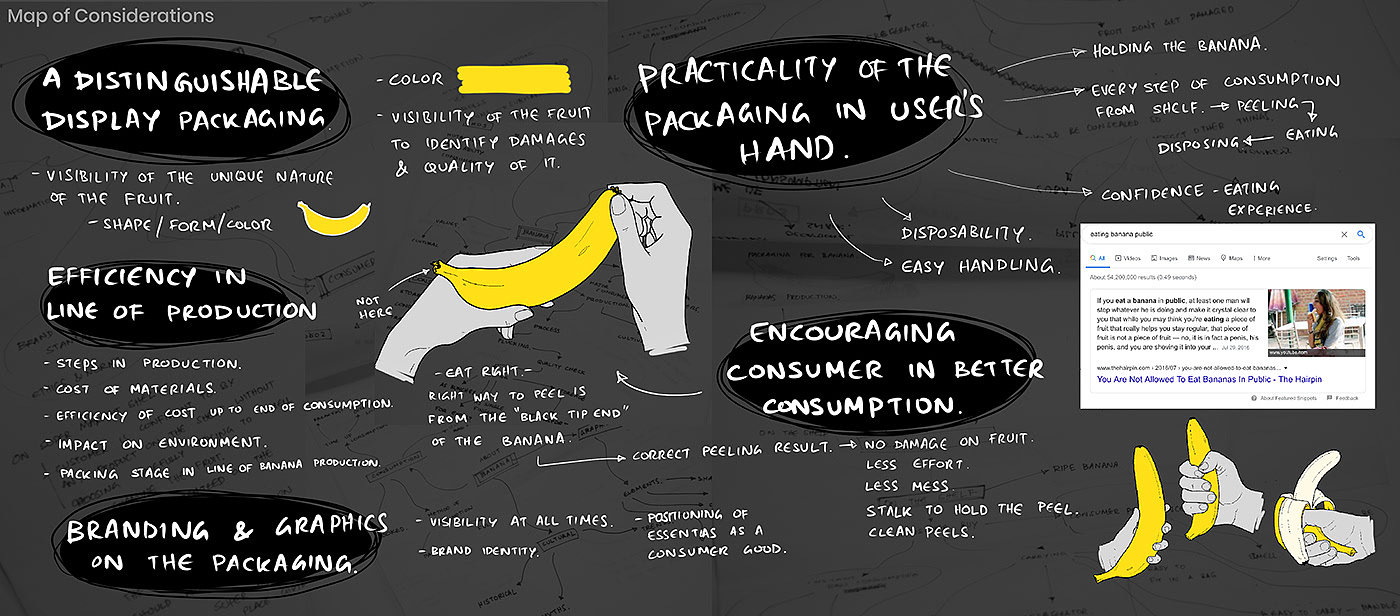 Map of Considerations
A DISTINGUISHABLE
DISPLAY PACKAGING.
- VISIBILITY OF THE UNIQUE NATURE
OF THE FRUIT.
- SHAPE/FORM/COLOR
- COLOR
- VISIBILITY OF THE FRUIT
TO IDENTIFY DAMAGES
& QUALITY OF IT.
EFFICIENCY IN
LINE OF PRODUCTION
- STEPS IN PRODUCTION.
- COST OF MATERIALS.
- EFFICIENCY OF COST UP TO END OF CONSUMPTION.
- IMPACT ON ENVIRONMENT.
- PACKING STAGE IN LINE OF BANANA PRODUCTION.
NOT
HERE
- EAT RIGHT. -
RIGHT WAY TO PEEL IS
FROM THE "BLACK TIP END"
OF THE BANANA.
CORRECT PEELING RESULT. → NO DAMAGE ON FRUIT.
LESS EFFORT.
LESS MESS.
STALK TO HOLD THE PEEL.
CLEAN PEELS.
BRANDING & GRAPHICS
ON THE PACKAGING.
- VISIBILITY AT ALL TIMES.
- BRAND IDENTITY.
- POSITIONING OF
ESSENTIAS AS A
CONSUMER GOOD.
PRACTICALITY OF THE
PACKAGING IN USER'S
HAND.
HOLDING THE BANANA.
EVERY STEP OF CONSUMPTION
FROM SHELF. → PEELING
EATING
DISPOSING
CONFIDENCE - EATING
EXPERIENCE.
DISPOSABILITY.
EASY HANDLING.
ENCOURAGING
CONSUMER IN BETTER
CONSUMPTION.
eating banana public
All Videos Images News Maps More Settings Tools
About 54,200,000 results (0.49 seconds)
If you eat a banana in public, at least one man will
stop whatever he is doing and make it crystal clear to
you that while you may think you're eating a piece of
fruit that really helps you stay regular, that piece of
fruit is not a piece of fruit — no, it is in fact a penis, his
penis, and you are shoving it into your ... Jul 29, 2016
www.youtube.com
www.thehairpin.com › 2016/07 › you-are-not-allowed-to-eat-bananas...
You Are Not Allowed To Eat Bananas In Public - The Hairpin
About Featured Snippets Feedback